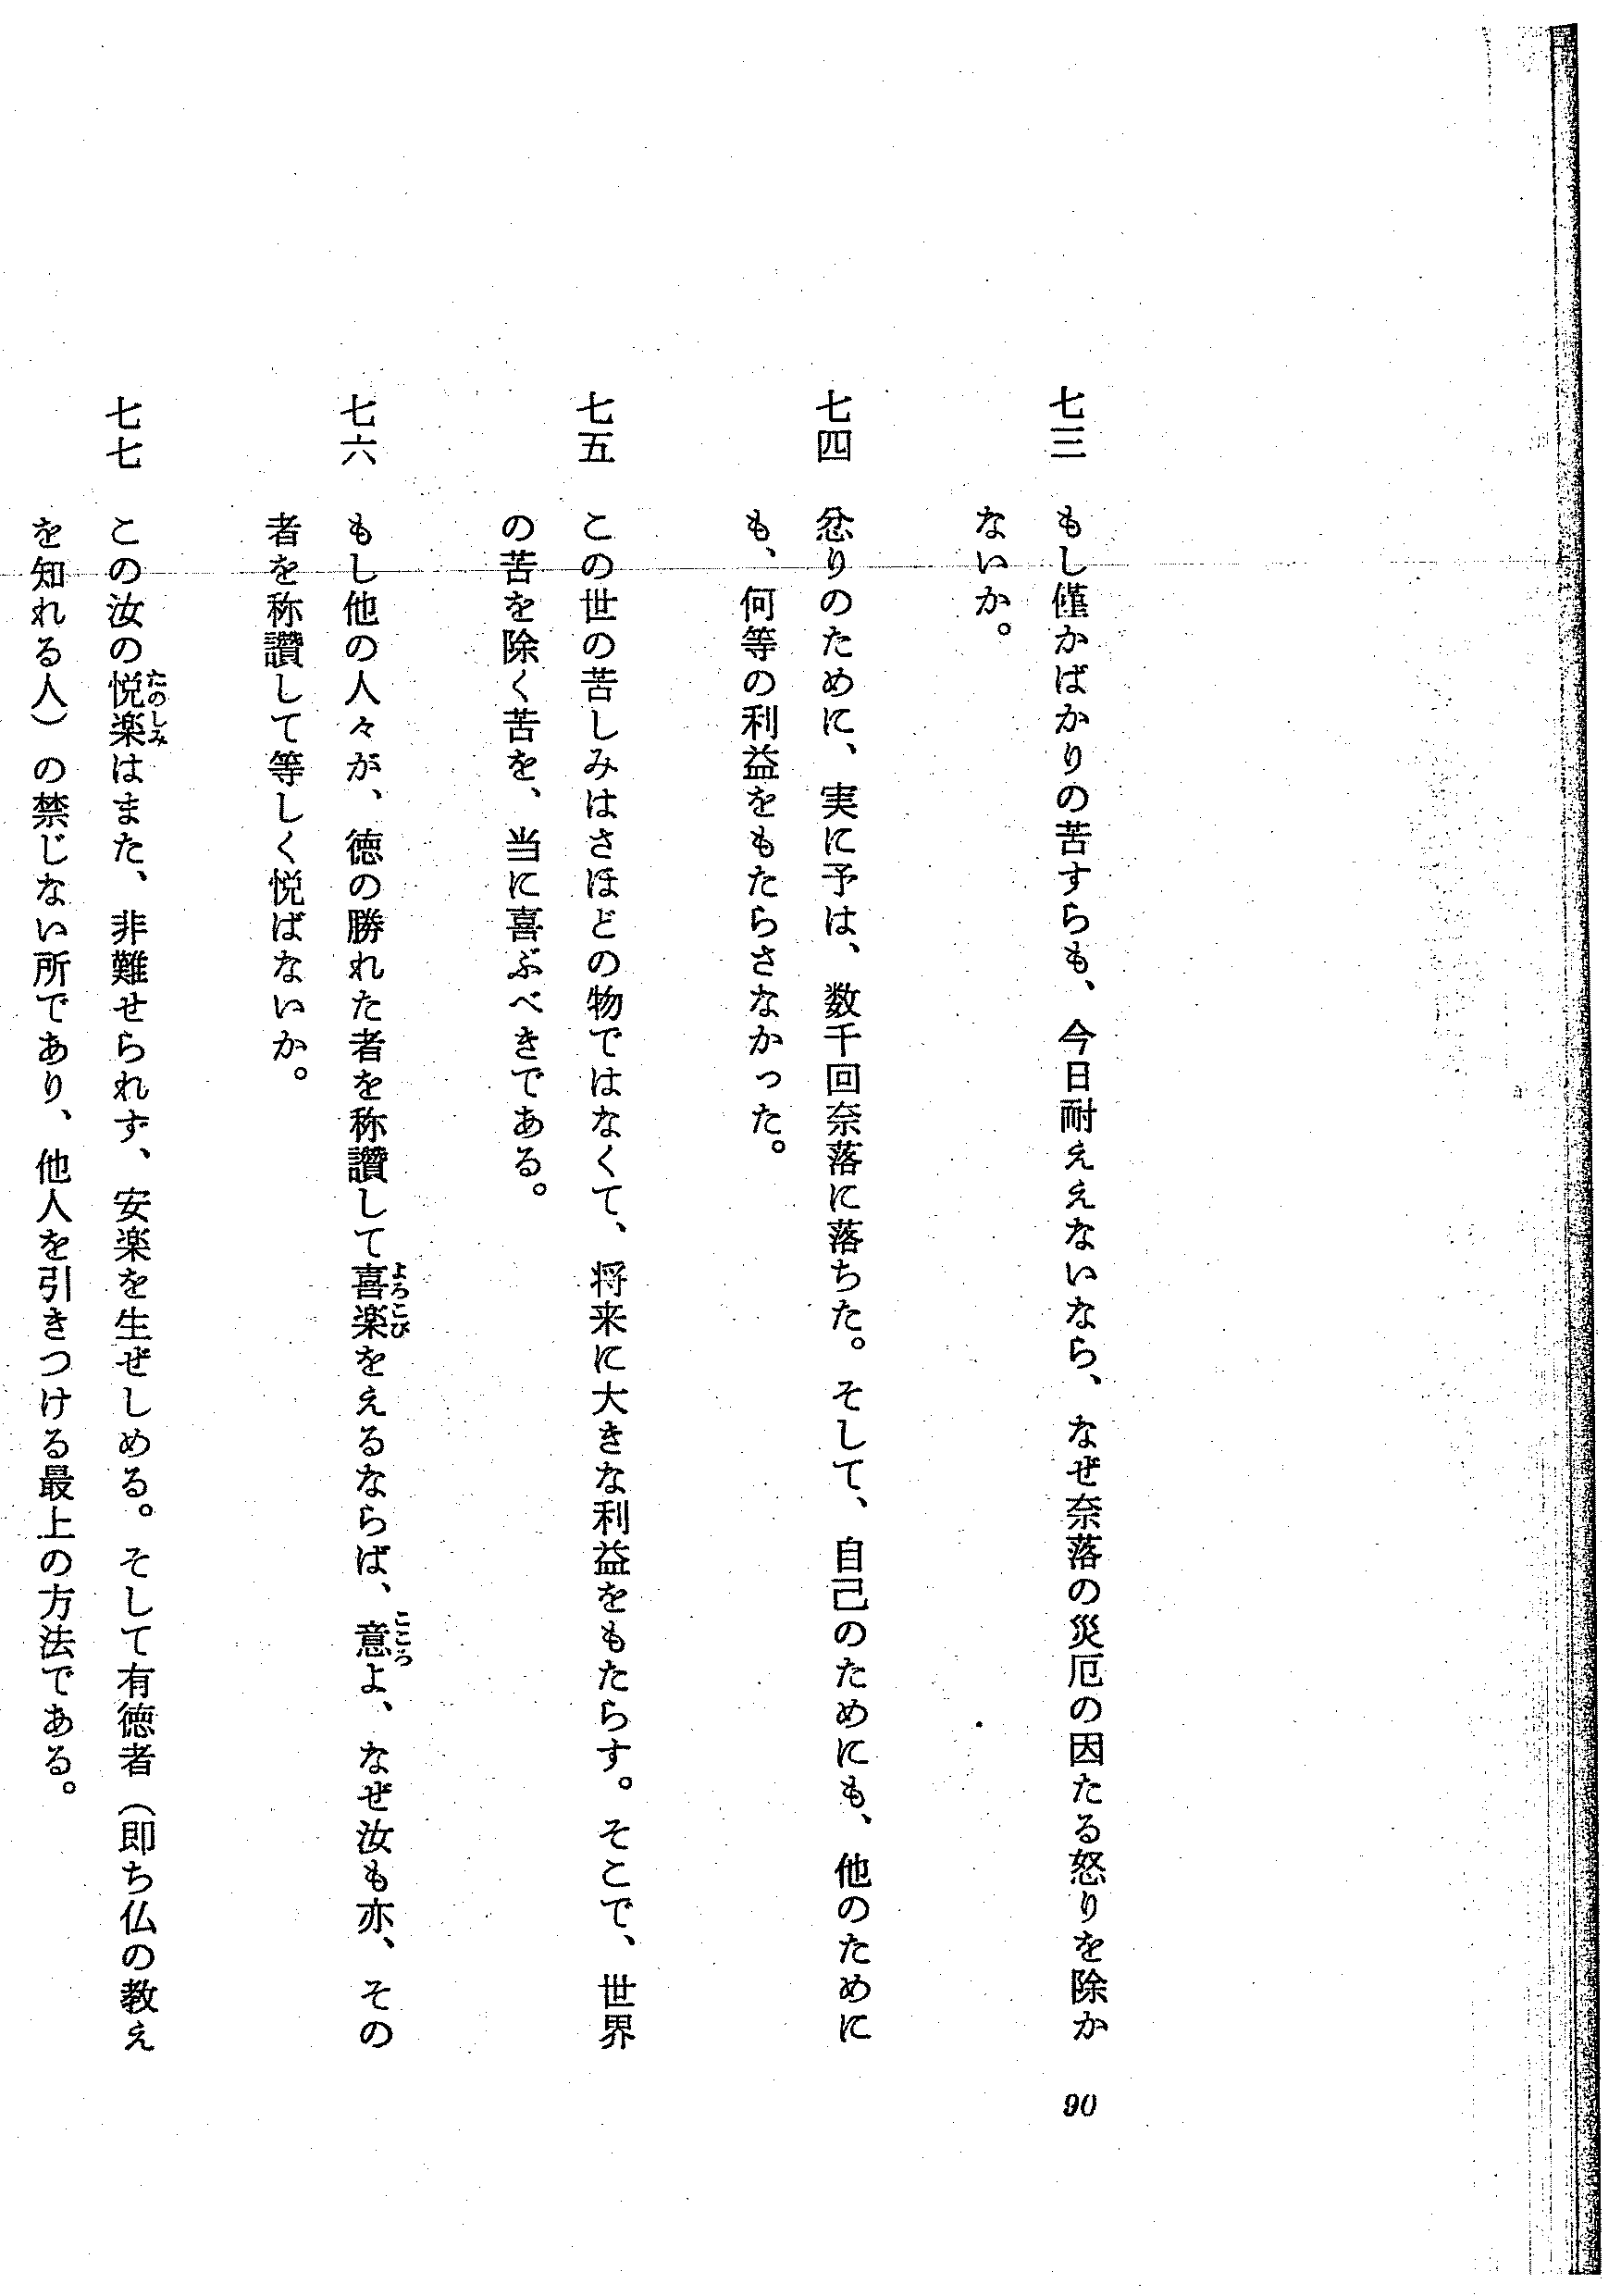 七三　もし僅かばかりの苦すらも、今日耐ええないなら、なぜ奈落の災厄の因たる怒りを除か
ないか。
七四　忿りのために、実に予は、数千回奈落に落ちた。そして、自己のためにも、他のために
も、何等の利益をもたらさなかった。
七五　この世の苦しみはさほどの物ではなくて、将来に大きな利益をもたらす。そこで、世界
の苦を除く苦を、当に喜ぶべきである。
七六　もし他の人々が、徳の勝れた者を称讃して喜楽をえるならば、意よ、なぜ汝も亦、その
者を称讃して等しく悦ばないか。
七七　この汝の悦楽はまた、非難せられず、安楽を生ぜしめる。そして有徳者（即ち仏の教え
を知れる人）の禁じない所であり、他人を引きつける最上の方法である。
よろこび
こころ
たのしみ
90